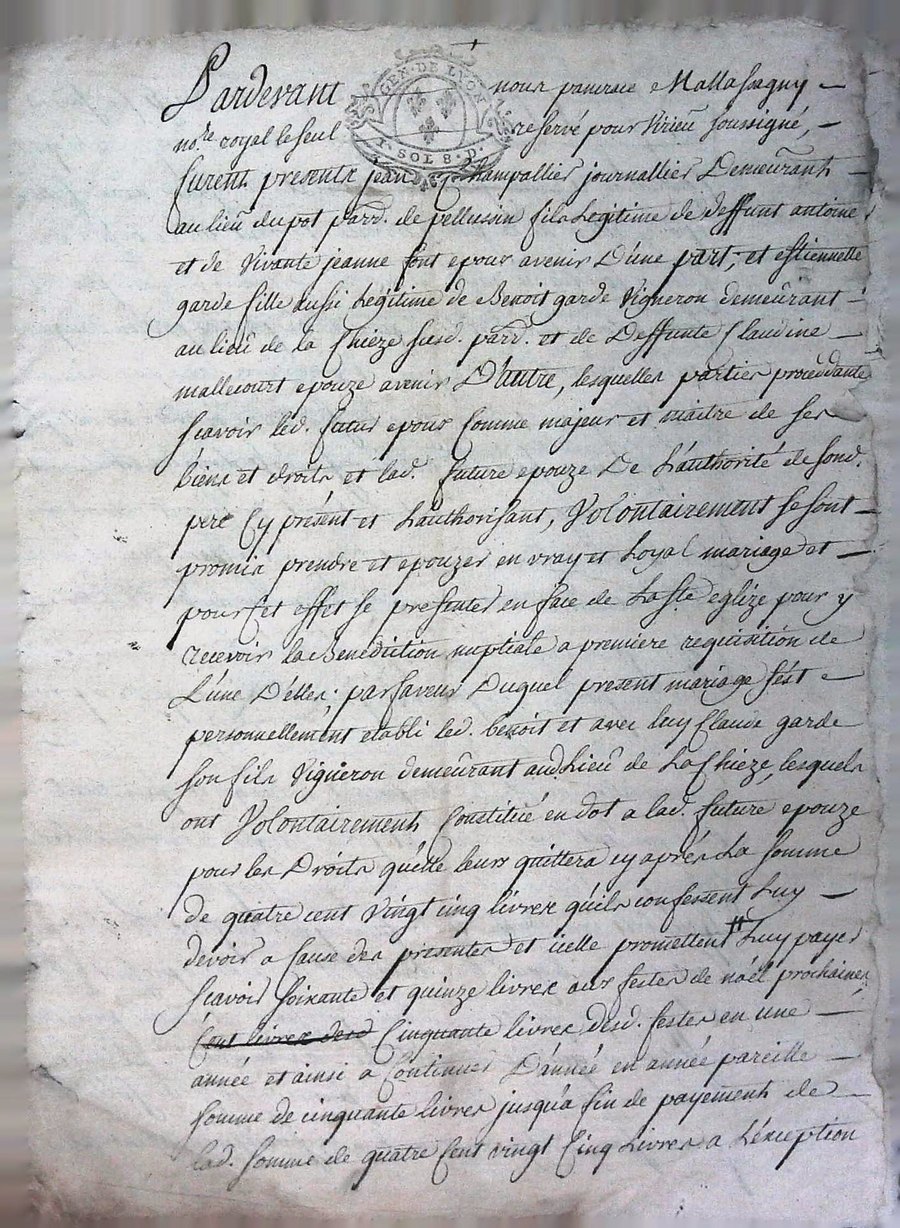 GEN. DE LYON
1. SOL 8. D.
Pardevant nous pancrace Mallassagny
no.re royal le seul reservé pour Virieu soussigné,
furent presents jean Champallier journallier Demeurant
au lieu du pot parr. de pellussin fils Legitime de deffunt antoine
et de Vivante jeanne font epoux avenir D'une part; et estiennette
garde fille aussi Legitime de Benoit garde Vigneron demeurant
au lieu de la Chieze susd. parr. et de Deffunte Claudine
mallecourt epouze avenir D'autre, lesquelles parties procèddantes
scavoir led. futur epoux Comme majeur et maitre de ses
biens et droits et lad. future epouze De L'authorité de sond.
pere Cy présent et L'authorisant, Volontairement se sont
promis prendre et epouzer en vray et Loyal mariage et
pour fet effet se presenter en face de La ste eglize pour y
recevoir la Benediction nuptiale a premiere requisition de
L'une D'elles; par faveur Duquel present mariage s'est
personnellement etabli led. benoit et avec luy Claude garde
son fils Vigneron demeurant aud Lieu de La Chieze, lesquels
ont Volontairement Constitué en dot a lad. future epouze
pour les Droits qu'elle leurs quittera cy après La somme
de quatre cent Vingt cinq livres qu'ils confessent Luy
devoir a Cause des presentes et icelle promettent # Luy payer
scavoir soixante et quinze livres aux festes de noël prochaines
Cent livres desd Cinquante livres desd. festes en une
année et ainsi a Continuer D'année en année pareille
somme de cinquante livres jusqu'a fin de payement de
lad. somme de quatre Cent vingt Cinq Livres a L'exception